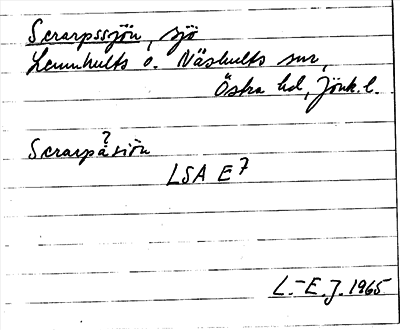 Scrarpssjön, sjö
Lemnhults o. Näshults snr,
Östra hd, Jönk. l.
?
Scrarpåsiön
LSA E7
L.-E. J. 1965